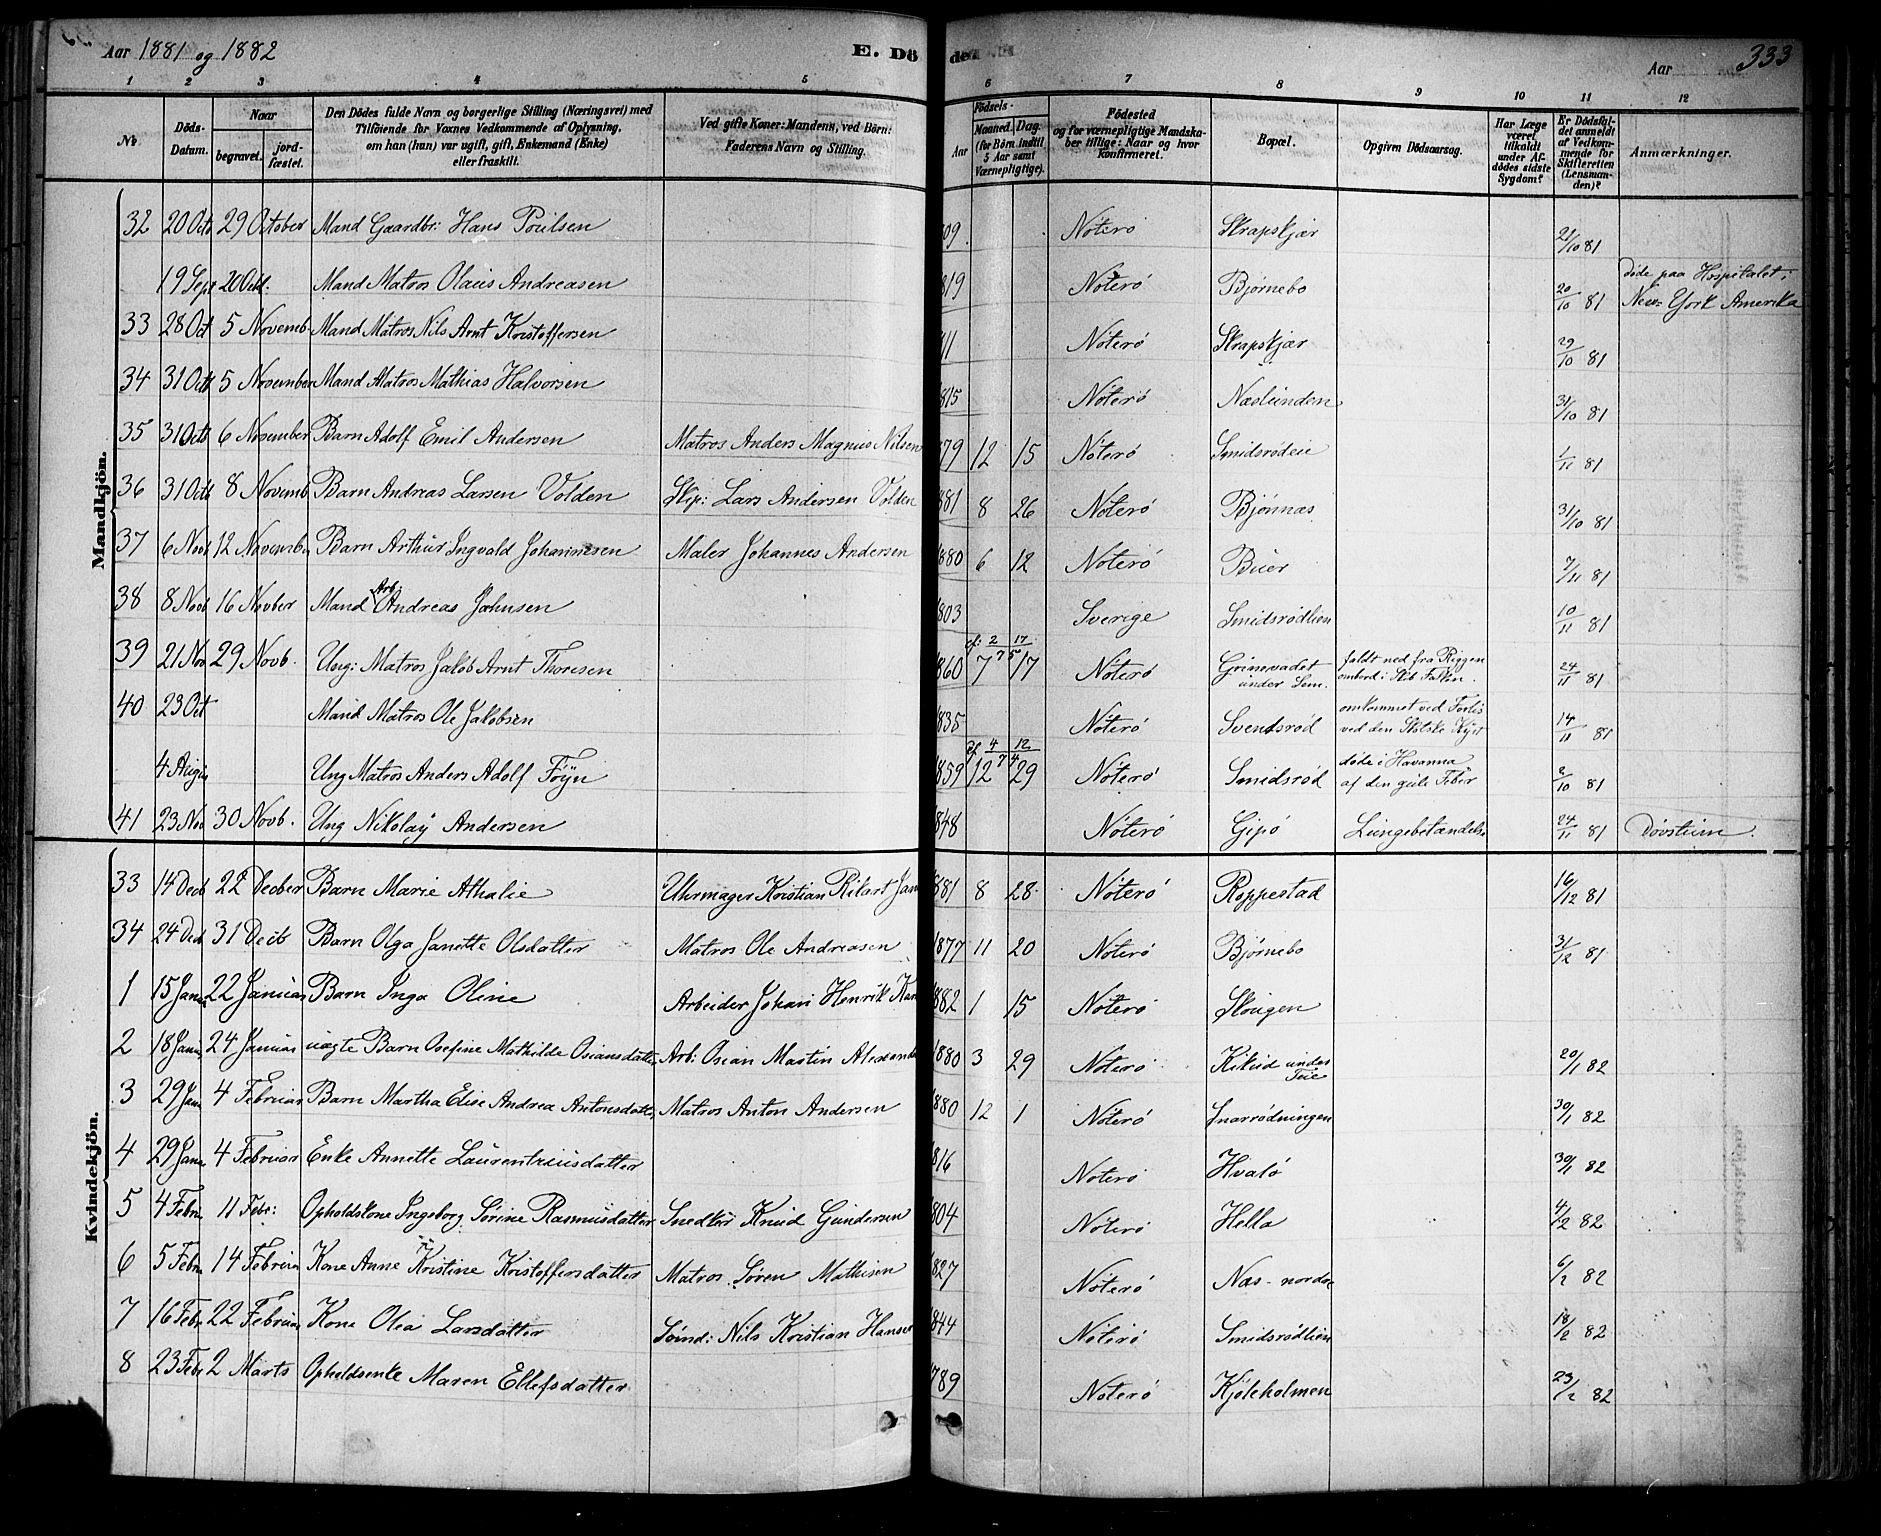 Aar 1881 og 1882 E. Döde Aar 333
1 2 3 4 5 6 7 8 9 10 11 12
No
Döds-Datum.
Naar
begravet.
jord-fæstet.
Den Dödes fulde Navn og borgerlige Stilling (Næringsvei) med
Tilföiende for Voxnes Vedkommende af Oplysning,
om han (hun) var ugift, gift, Enkemand (Enke)
eller fraskilt.
Ved gifte Koner: Mandens, ved Börn:
Faderens Navn og Stilling.
Födsels-
Aar Maaned. Dag.
(for Börn indtil
5 Aar samt
Værnepligtige).
Födested
og for værnepligtige Mandska-
ber tillige: Naar og hvor
konfirmeret.
Bopæl.
Opgiven Dödsaarsag.
Har Læge
været
tilkaldt
under Af-
dödes sidste
Sygdom?
Er Dödsfal-
det anmeldt
af Vedkom-
mende for
Skifteretten
(Lensman-
den)?
Anmærkninger.
Mandkjön.
32 20 Oct 29 October Mand Gaardbr: Hans Poulsen 809 Nöterö Skrapskjær 21/10 81
19 Sept 20 Oct. Mand Matros Olaus Andreasen 819 Nöterö Bjørnebo 20/10 81 døde paa Hospitalet i
New-York Amerika
33 28 Oct 5 Novemb. Mand Matros Nils Arnt Kristoffersen 11 Nöterö Skrapskjær 29/10 81
34 31 Oct 5 November Mand Matros Mathias Halvorsen 815 Nöterö Næslunden 31/10 81
35 31 Octb 6 November Barn Adolf Emil Andersen Matros Anders Magnus Nilsen 79 12 15 Nöterö Smidsrødeie 1/11 81
36 31 Octb 8 Novemb Barn Andreas Larsen Volden Skip: Lars Andersen Volden 881 8 26 Nöterö Bjønnæs 31/10 81
37 6 Novb 12 November Barn Arthur Ingvald Johannesen Maler Johannes Andersen 880 6 12 Nöterö Buer 7/11 81
38 8 Novb 16 Novber Mand Arb: Andreas Johnsen 803 Sverige Smidsrødlien 10/11 81
39 21 Nov 29 Novb. Ung: Matros Jakob Arnt Thoresen 860 7 17 Nöterö Grimsvadet
under Sem. faldt ned fra Riggen
ombord i Skib Falken. 24/11 81
40 23 Oct Mand Matros Ole Jakobsen 835 Nöterö Svendsrød omkommet ved Forlis
ved den Skotske Kyst 14/11 81
4 Augu Ung Matros Anders Adolf Föyn 859 12 29 Nöterö Smidsrød døde i Havanna
af den gule Feber 2/10 81
41 23 Nov 30 Novb. Ung Nikolay Andersen 848 Nöterö Gipö Lungebetændelse 24/11 81 Døvstum.
Kvindekjön.
33 14 Decb 22 Decber Barn Marie Athalie Uhrmager Kristian Rikart Jan 881 8 28 Nöterö Roppestad 16/12 81
34 24 Decb 31 Decb Barn Olga Janette Olsdatter Matros Ole Andreasen 1877 11 20 Nöterö Bjørnebo 31/12 81
1 15 Janu 22 Januar Barn Inga Oline Arbeider Johan Henrik Kar 882 1 15 Nöterö Skougen
2 18 Janu 24 Januar uægte Barn Osefine Mathilde Osiansdatter Arb: Osian Martin Alexande 1880 3 29 Nöterö Kikud under
Teie 20/1 82
3 29 Jan 4 Februar Barn Martha Elise Andrea Antonsdatter Matros Anton Andersen 880 12 1 Nöterö Snarrødningen 30/1 82
4 29 Jan 4 Februar Enke Annette Laurentziusdatter 816 Nöterö Hvalö 30/1 82
5 4 Febru 11 Febr: Opholdskone Ingeborg Sørine Rasmusdatter Snedker Knud Gundersen 804 Nöterö Hella 4/2 82
6 5 Febru 14 Februar Kone Anne Kristine Kristoffersdatter Matros Søren Mathisen 827 Nöterö Næs-nordre 6/2 82
7 16 Febr 22 Februar Kone Olea Larsdatter Tömd: Nils Kristian Hansen 844 Nöterö Smidsrødlien 18/2 82
8 23 Febr 2 Marts Opholdsenke Maren Ellefsdatter 789 Nöterö Kjøleholmen 23/2 82